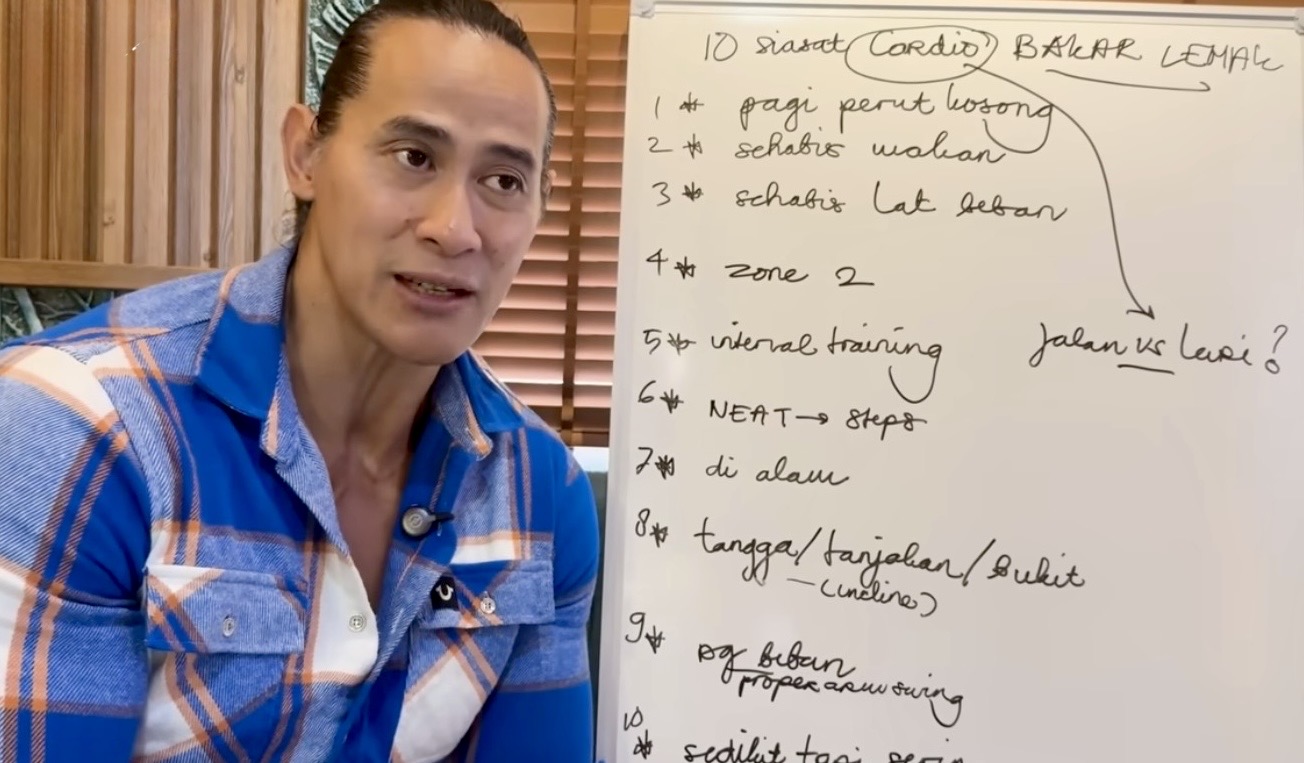 10 siasat Cardio BAKAR LEMAK
1 * pagi perut kosong
2 * sehabis makan
3 * sehabis lat beban
4 * zone 2
5 * interval training
Jalan vs lari?
6 * NEAT → steps
7 * di alam
8 * tangga/tanjakan/bukit
(incline)
9 * dg beban
proper arm swing
10 * sedikit tapi